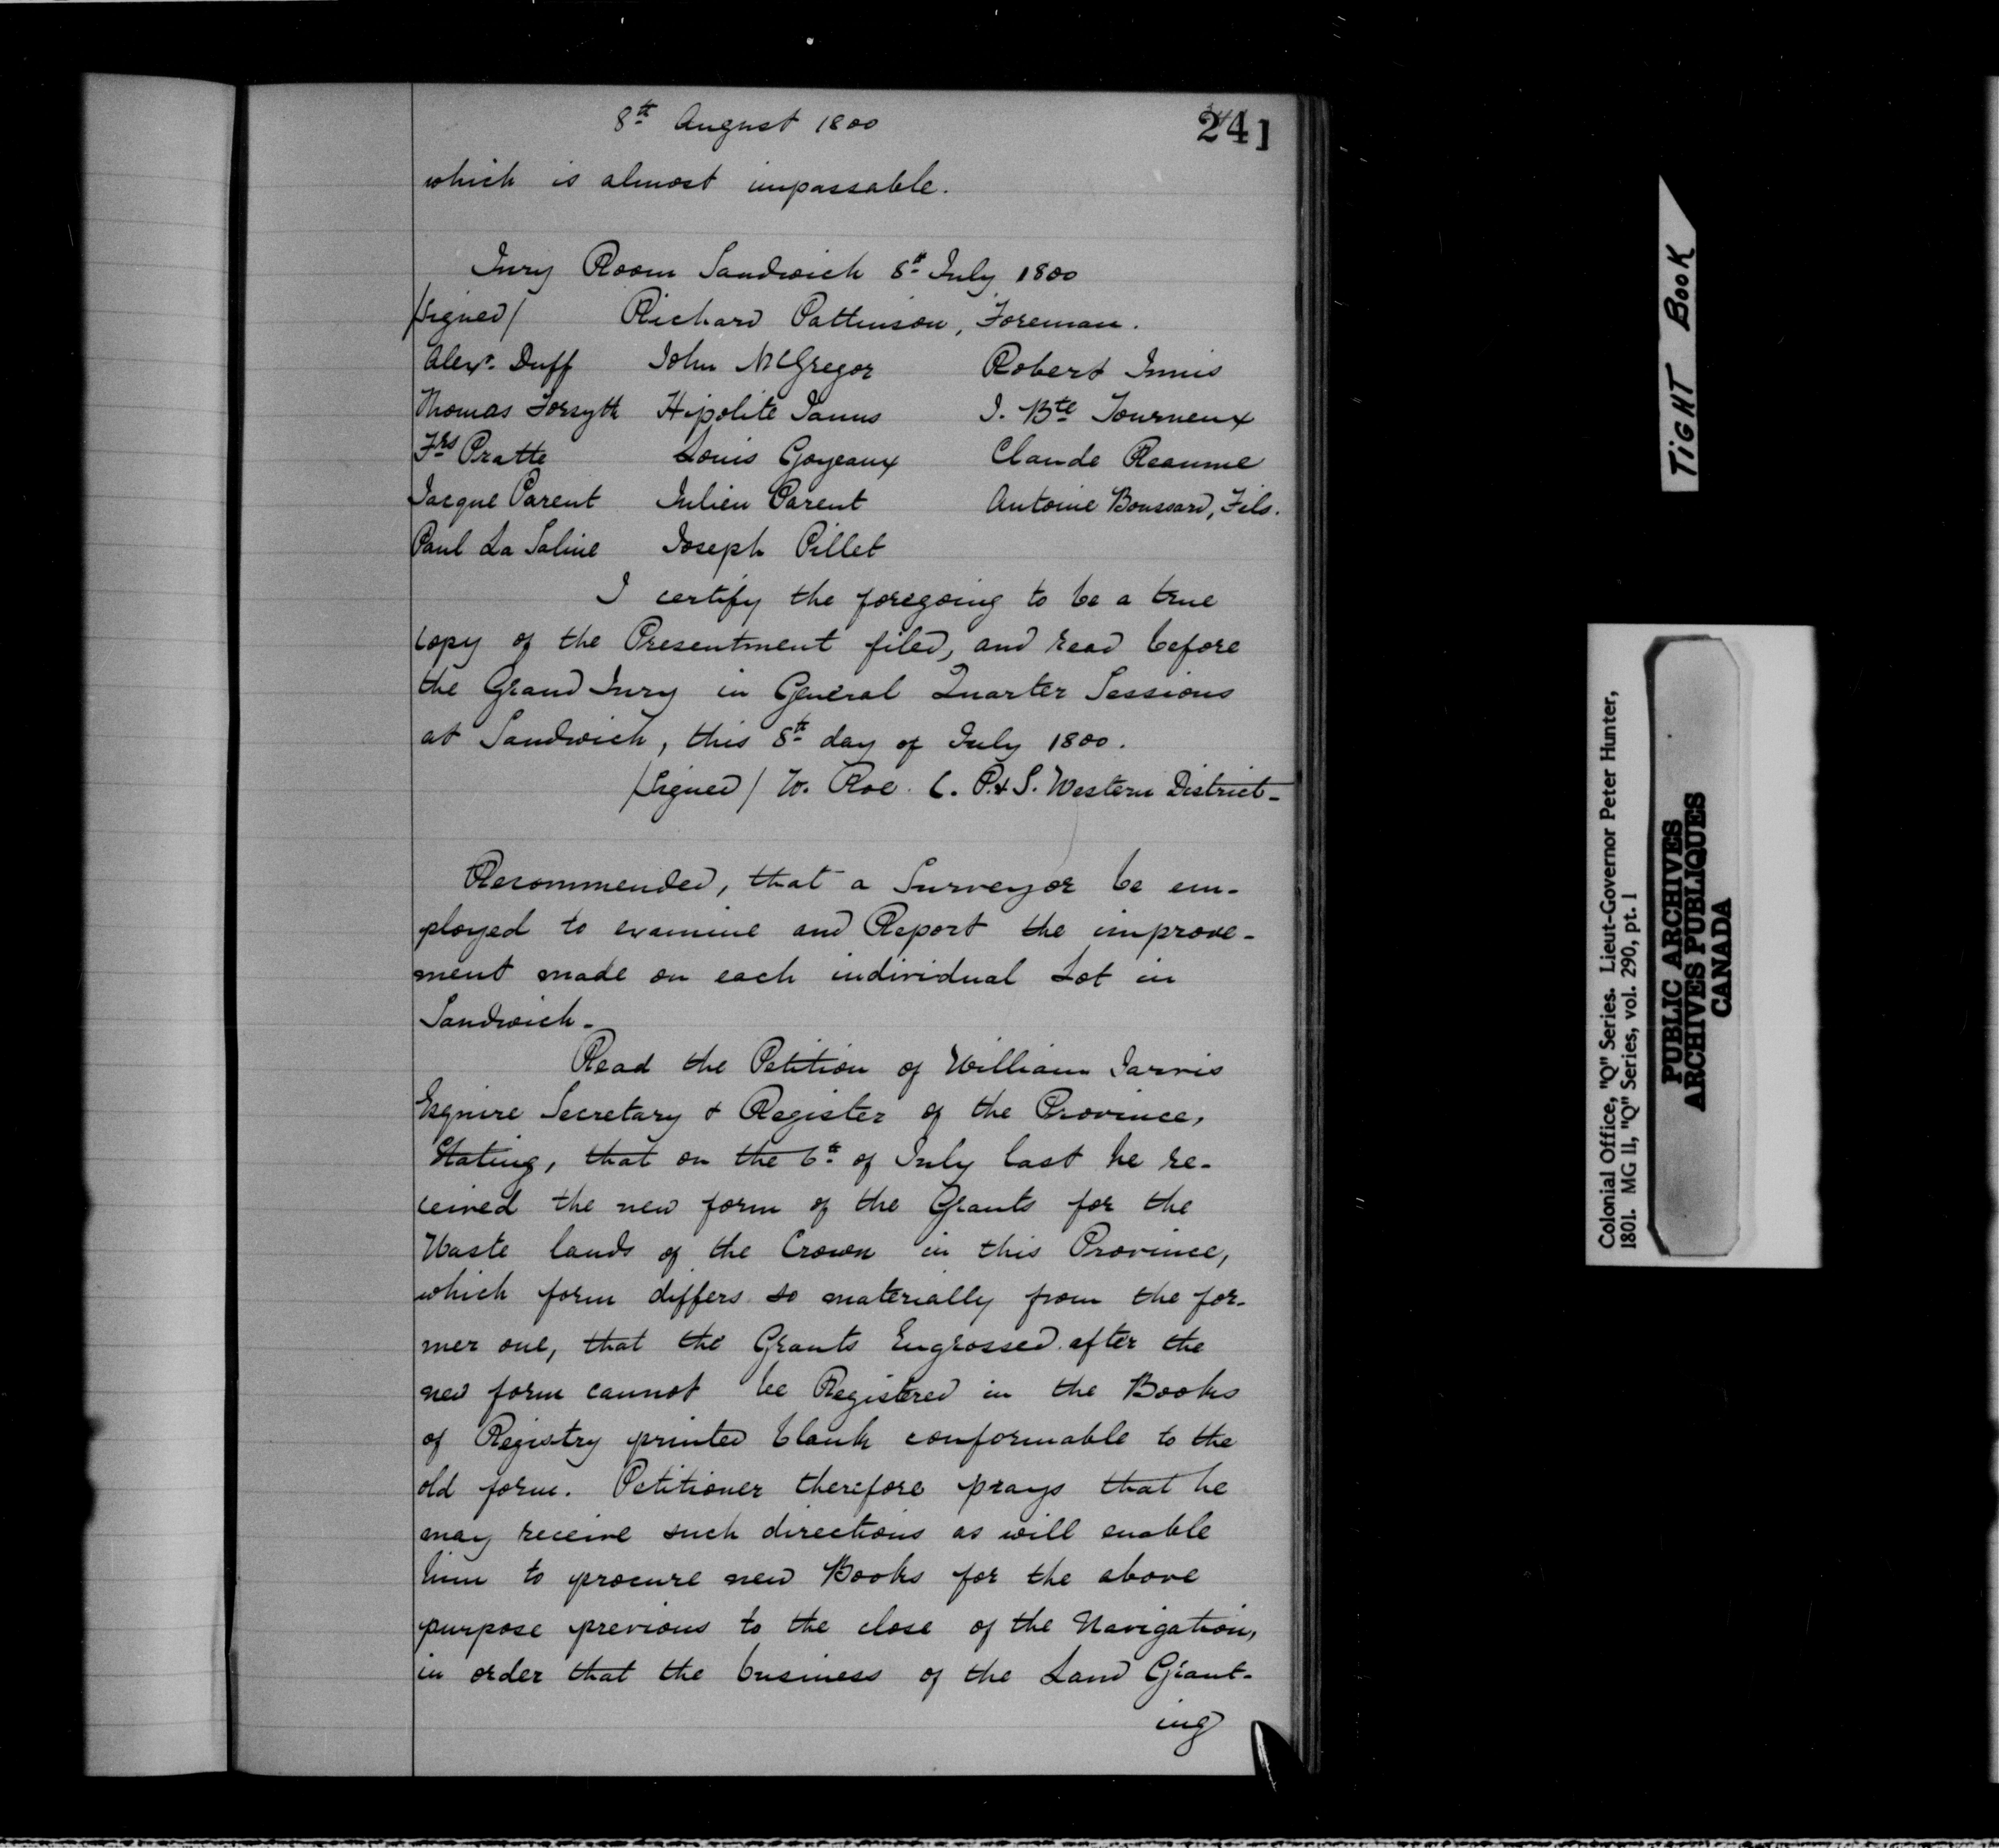 8th August 1800
241
which is almost impassable.
Jury Room Sandwich 8th July 1800
/signed/ Richard Pattinson, Foreman.
Alexr. Duff John McGregor Robert Innis
Thomas Forsyth Hipolite Janus J. Bte Tourneux
Frs Pratte Louis Goyeaux Claude Reaume
Jacque Parent Julien Parent Antoine Boussard, Fils.
Paul La Saline Joseph Pillet
I certify the foregoing to be a true
copy of the Presentment filed, and read before
the Grand Jury in General Quarter Sessions
at Sandwich, this 8th day of July 1800.
/signed/ W. Roe. C. P. & S. Western District-
Recommended, that a Surveyor be em-
ployed to examine and Report the improve-
ment made on each individual Lot in
Sandwich-
Read the Petition of William Jarvis
Esquire Secretary & Register of the Province,
Stating, that on the 6th of July last he re-
ceived the new form of the Grants for the
Waste lands of the Crown in this Province,
which form differs so materially from the for-
mer one, that the Grants Engrossed after the
new form cannot be Registered in the Books
of Registry printed blank conformable to the
old form. Petitioner therefore prays that he
may receive such directions as will enable
him to procure new Books for the above
purpose previous to the close of the Navigation,
in order that the business of the Land Grant-
ing
TIGHT BOOK
Colonial Office, "Q" Series. Lieut-Governor Peter Hunter,
1801. MG 11, "Q" Series, vol. 290, pt. 1
PUBLIC ARCHIVES
ARCHIVES PUBLIQUES
CANADA